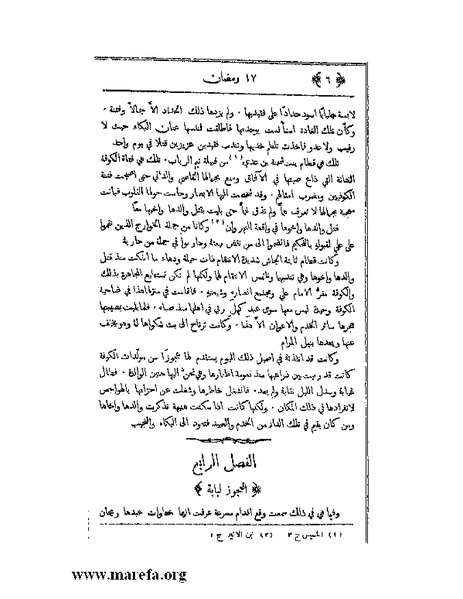 ﴿ ٦ ﴾ ١٧ رمضان
لابسة جلبابًا اسود حدادًا على فقيديها . ولم يزدها ذلك الحداد الاّ جمالاً وفتنة .
وكأن تلك الغادة استأنست بوحدتها فاطلقت لنفسها عنان البكاء حيث لا
رقيب ولا عدو فاخذت تلطم خديها وتندب فقيدين عزيزين قتلا في يوم واحد
تلك هي قطام بنت شحنة بن عدي (١) من قبيلة تيم الرباب . تلك هي فتاة الكوفة
الفتانة التي ذاع صيتها في الآفاق وسمع بجمالها القاصي والداني حتى اصبحت فتنة
الكوفيين ومضرب امثالهم . وقد شخصت اليها الابصار وحامت حولها القلوب فباتت
معجبة بجمالها لا تعرف همًّا ولم تذق غمًّا حتى بليت بقتل والدها واخيها معًا
قتل والدها واخوها في واقعة النهروان (٢) وكانا من جملة الخوارج الذين نقموا
على علي لقبوله بالتحكيم فانضموا الى من نقض بيعته وحاربوا في جملة من حاربه
وكانت قطام ثابتة الجاش شديدة الانتقام ذات حيلة ودهاء ما انفكت منذ قتل
والدها واخوها وهي تندبهما وتلتمس الانتقام لهما ولكنها لم تكن تستطيع المجاهرة بذلك
والكوفة مقرّ الامام علي ومجتمع انصاره وشيعته . فاقامت في منزلها هذا في ضاحية
الكوفة وحيدة ليس معها سوى عبد كهل ربي في اهلها منذ صباه . فلما بليت بمصيبتها
هجرها سائر الخدم والاعوان الاّ هذا . وكانت ترتاح الى بث شكواها له وهو يخفف
عنها ويعدها بنيل المرام
وكانت قد انفذته في اصيل ذلك اليوم يستقدم لها عجوزًا من مولّدات الكوفة
كانت قد ربيت بين ذراعيها منذ نعومة اظفارها وهي تحنّ اليها حنين الوالدة . فطال
غيابه وسدل الليل نقابه ولم يعد . فانشغل خاطرها وشغلت عن احزانها بالهواجس
لانفرادها في ذلك المكان . ولكنها كانت اذا سكنت هنيهة تذكرت والدها واخاها
ومن كان يقيم في تلك الدار من الخدم والعبيد فتعود الى البكاء والنحيب
الفصل الرابع
﴿ العجوز لبابة ﴾
وفيما هي في ذلك سمعت وقع اقدام مسرعة عرفت انها خطوات عبدها ريحان
(١) الخميس ج ٢ (٢) ابن الاثير ج ٤
www.marefa.org